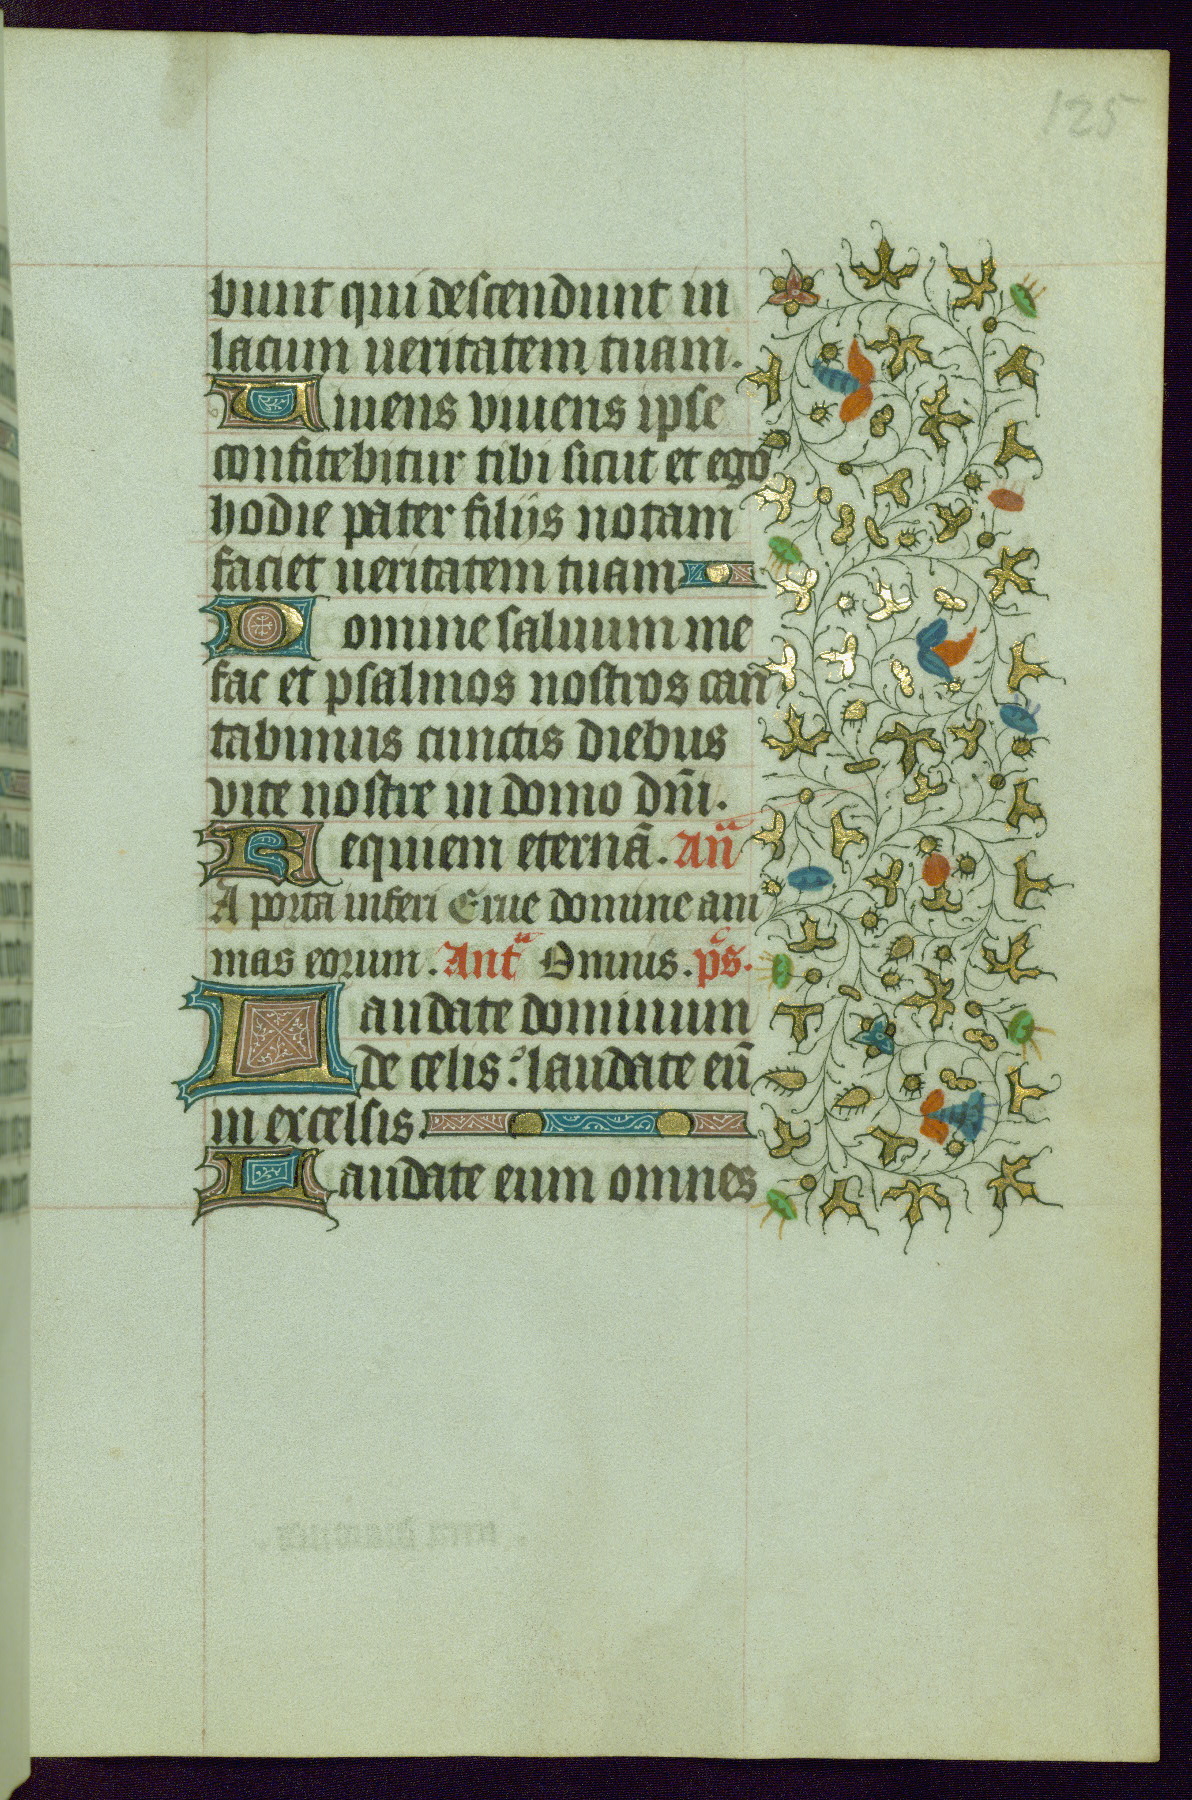 125
bunt qui descendunt in
lacum ueritatem tuam.
Viuens viuens ipse
confitebitur tibi sicut et ego
hodie pater filijs notam
faciet ueritatem tuam
Domine saluum me
fac et psalmos nostros can
tabimus cunctis diebus
vite nostre in domo dn̄i.
Requiem eternā. Añ
A porta inferi Erue domine ani
mas eorum. Ant Omnis. ps.
Laudate dominum
de celis: laudate eū
in excelsis.
Laudate eum omnes